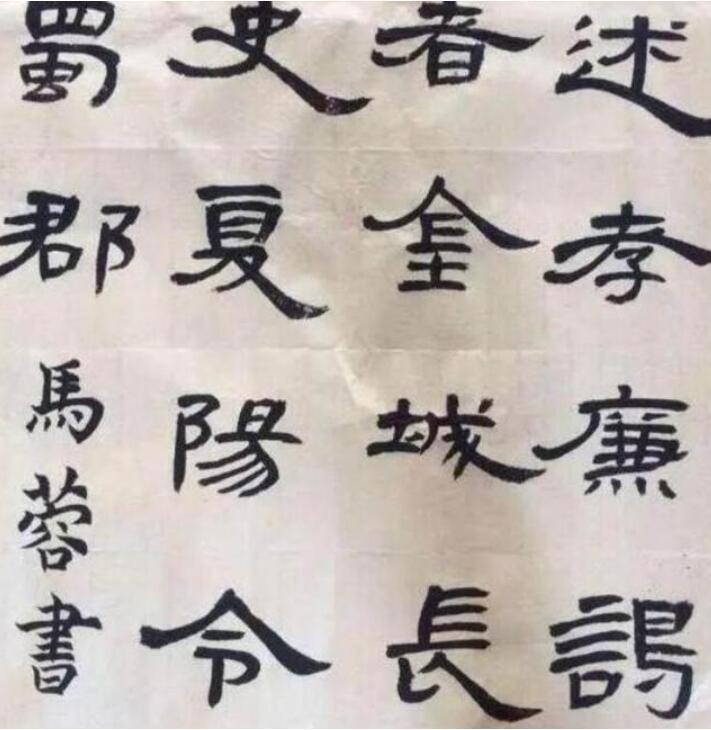 述孝廉謁
者金城長
史夏陽令
蜀郡
馬蓉書